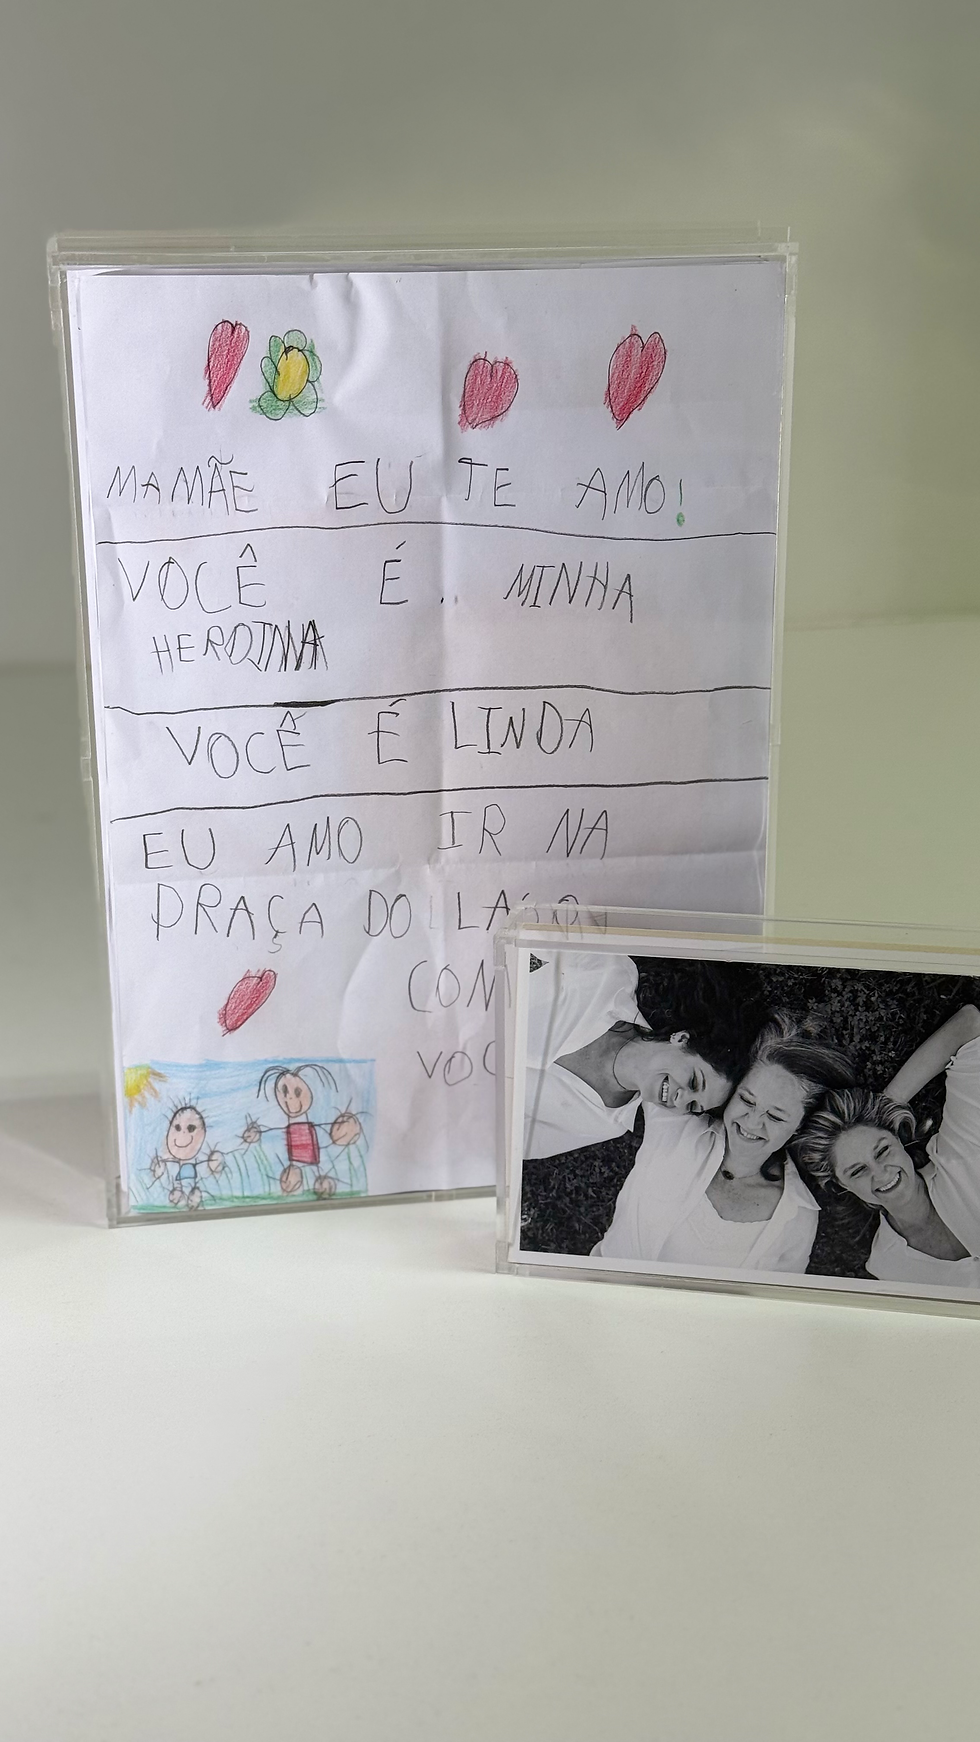 MAMÃE EU TE AMO!
VOCÊ É.. MINHA
HEROINA
VOCÊ É LINDA
EU AMO IR NA
PRAÇA DO
CON
VOC